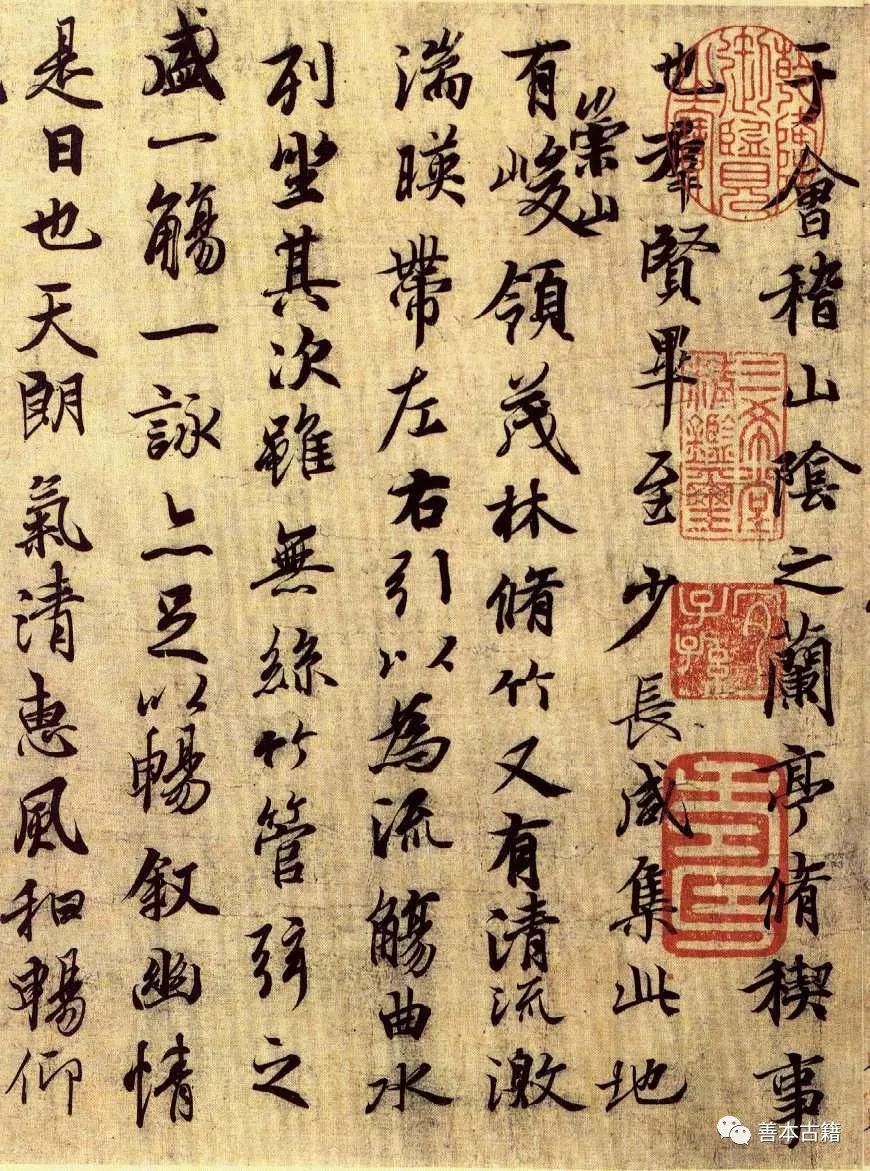 于會稽山陰之蘭亭脩稧事
也羣賢畢至少長咸集此地
有崇山峻領茂林脩竹又有清流激
湍暎帶左右引以為流觴曲水
列坐其次雖無絲竹管弦之
盛一觴一詠亦足以暢敘幽情
是日也天朗氣清惠風和暢仰
乾隆御覽之寶
三希堂精鑑璽
宜子孫
善本古籍